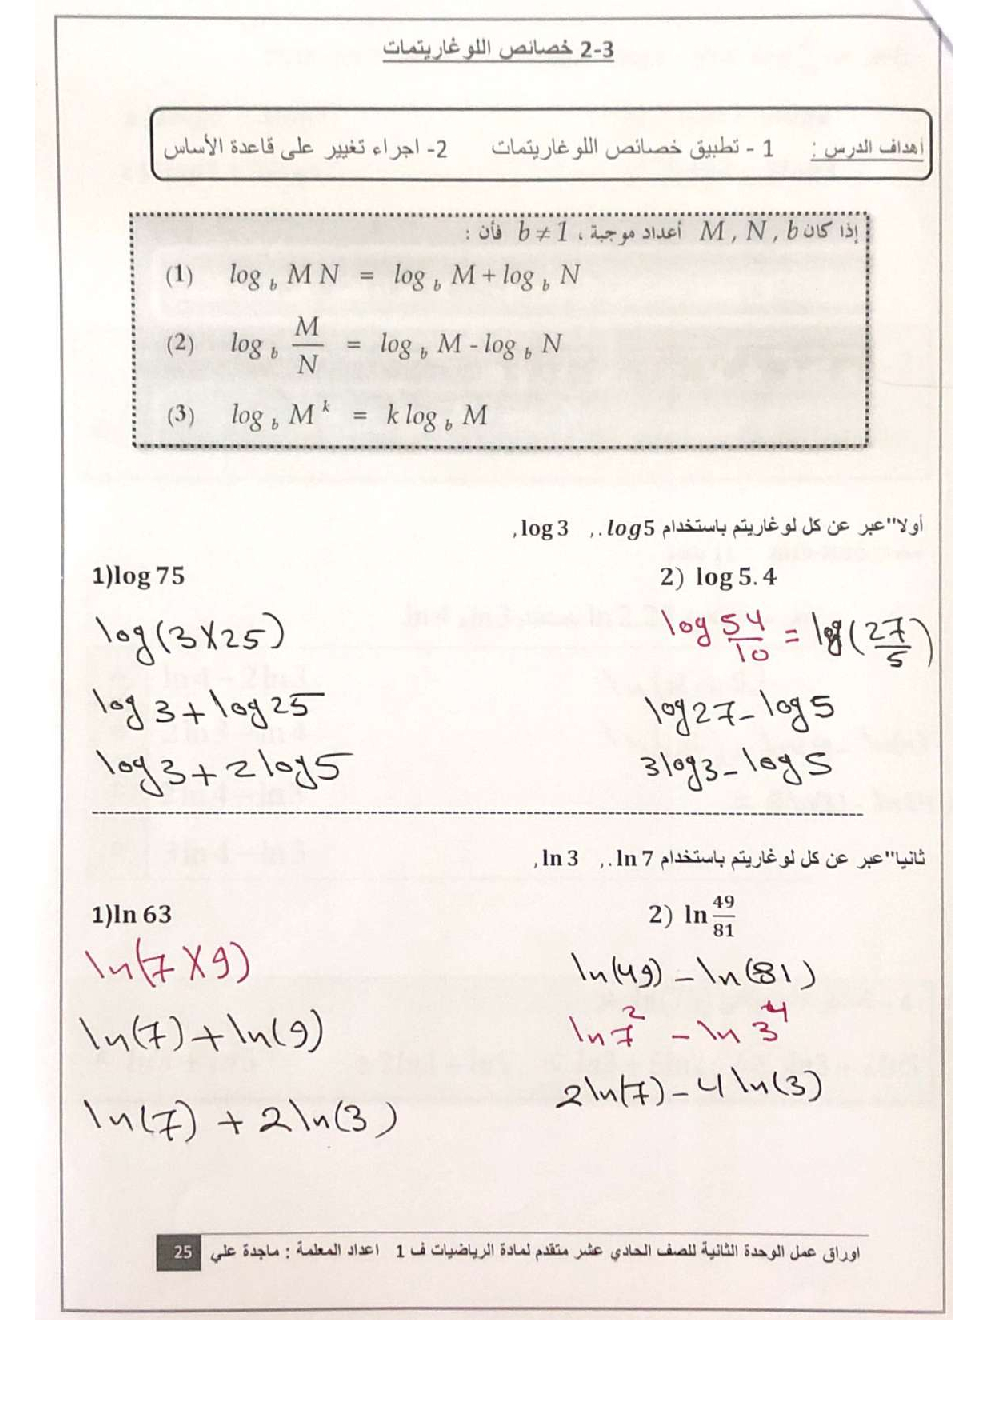 2-3 خصائص اللوغاريتمات
أهداف الدرس : 1 - تطبيق خصائص اللوغاريتمات 2- اجراء تغيير على قاعدة الأساس
إذا كان M , N , b أعداد موجبة ، b ≠ 1 فأن :
(1) log b M N = log b M + log b N
(2) log b M/N = log b M - log b N
(3) log b M^k = k log b M
أولا"عبر عن كل لوغاريتم باستخدام log 3 ,. log5,
1)log 75 2) log 5.4
log(3×25) log 54/10 = log(27/5)
log 3 + log 25 log 27 - log 5
log 3 + 2 log 5 3 log 3 - log 5
ثانيا"عبر عن كل لوغاريتم باستخدام ln 3 ,. ln 7,
1)ln 63 2) ln 49/81
ln(7×9) ln(49) - ln(81)
ln(7) + ln(9) ln 7² - ln 3⁴
ln(7) + 2 ln(3) 2 ln(7) - 4 ln(3)
اوراق عمل الوحدة الثانية للصف الحادي عشر متقدم لمادة الرياضيات ف 1 اعداد المعلمة : ماجدة علي 25